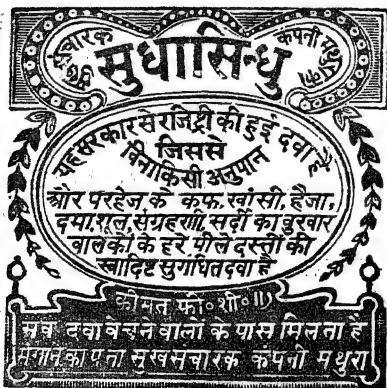 सुखसंचारक
सुधासिन्धु
कंपनी मथुरा का
यह सरकार से रजिट्री की हुई दवा है
जिससे
विना किसी अनुपान
और परहेज के कफ, खांसी, हैजा,
दमा, शूल, संग्रहणी, सर्दी का बुखार
बालकों के हरे पीले दस्तों की
स्वादिष्ट सुगंधित दवा है
कीमत फी॰ शी॰ ॥)
सब दवा बेचने वालों के पास मिलता है
मंगाने का पता सुखसंचारक कंपनी मथुरा